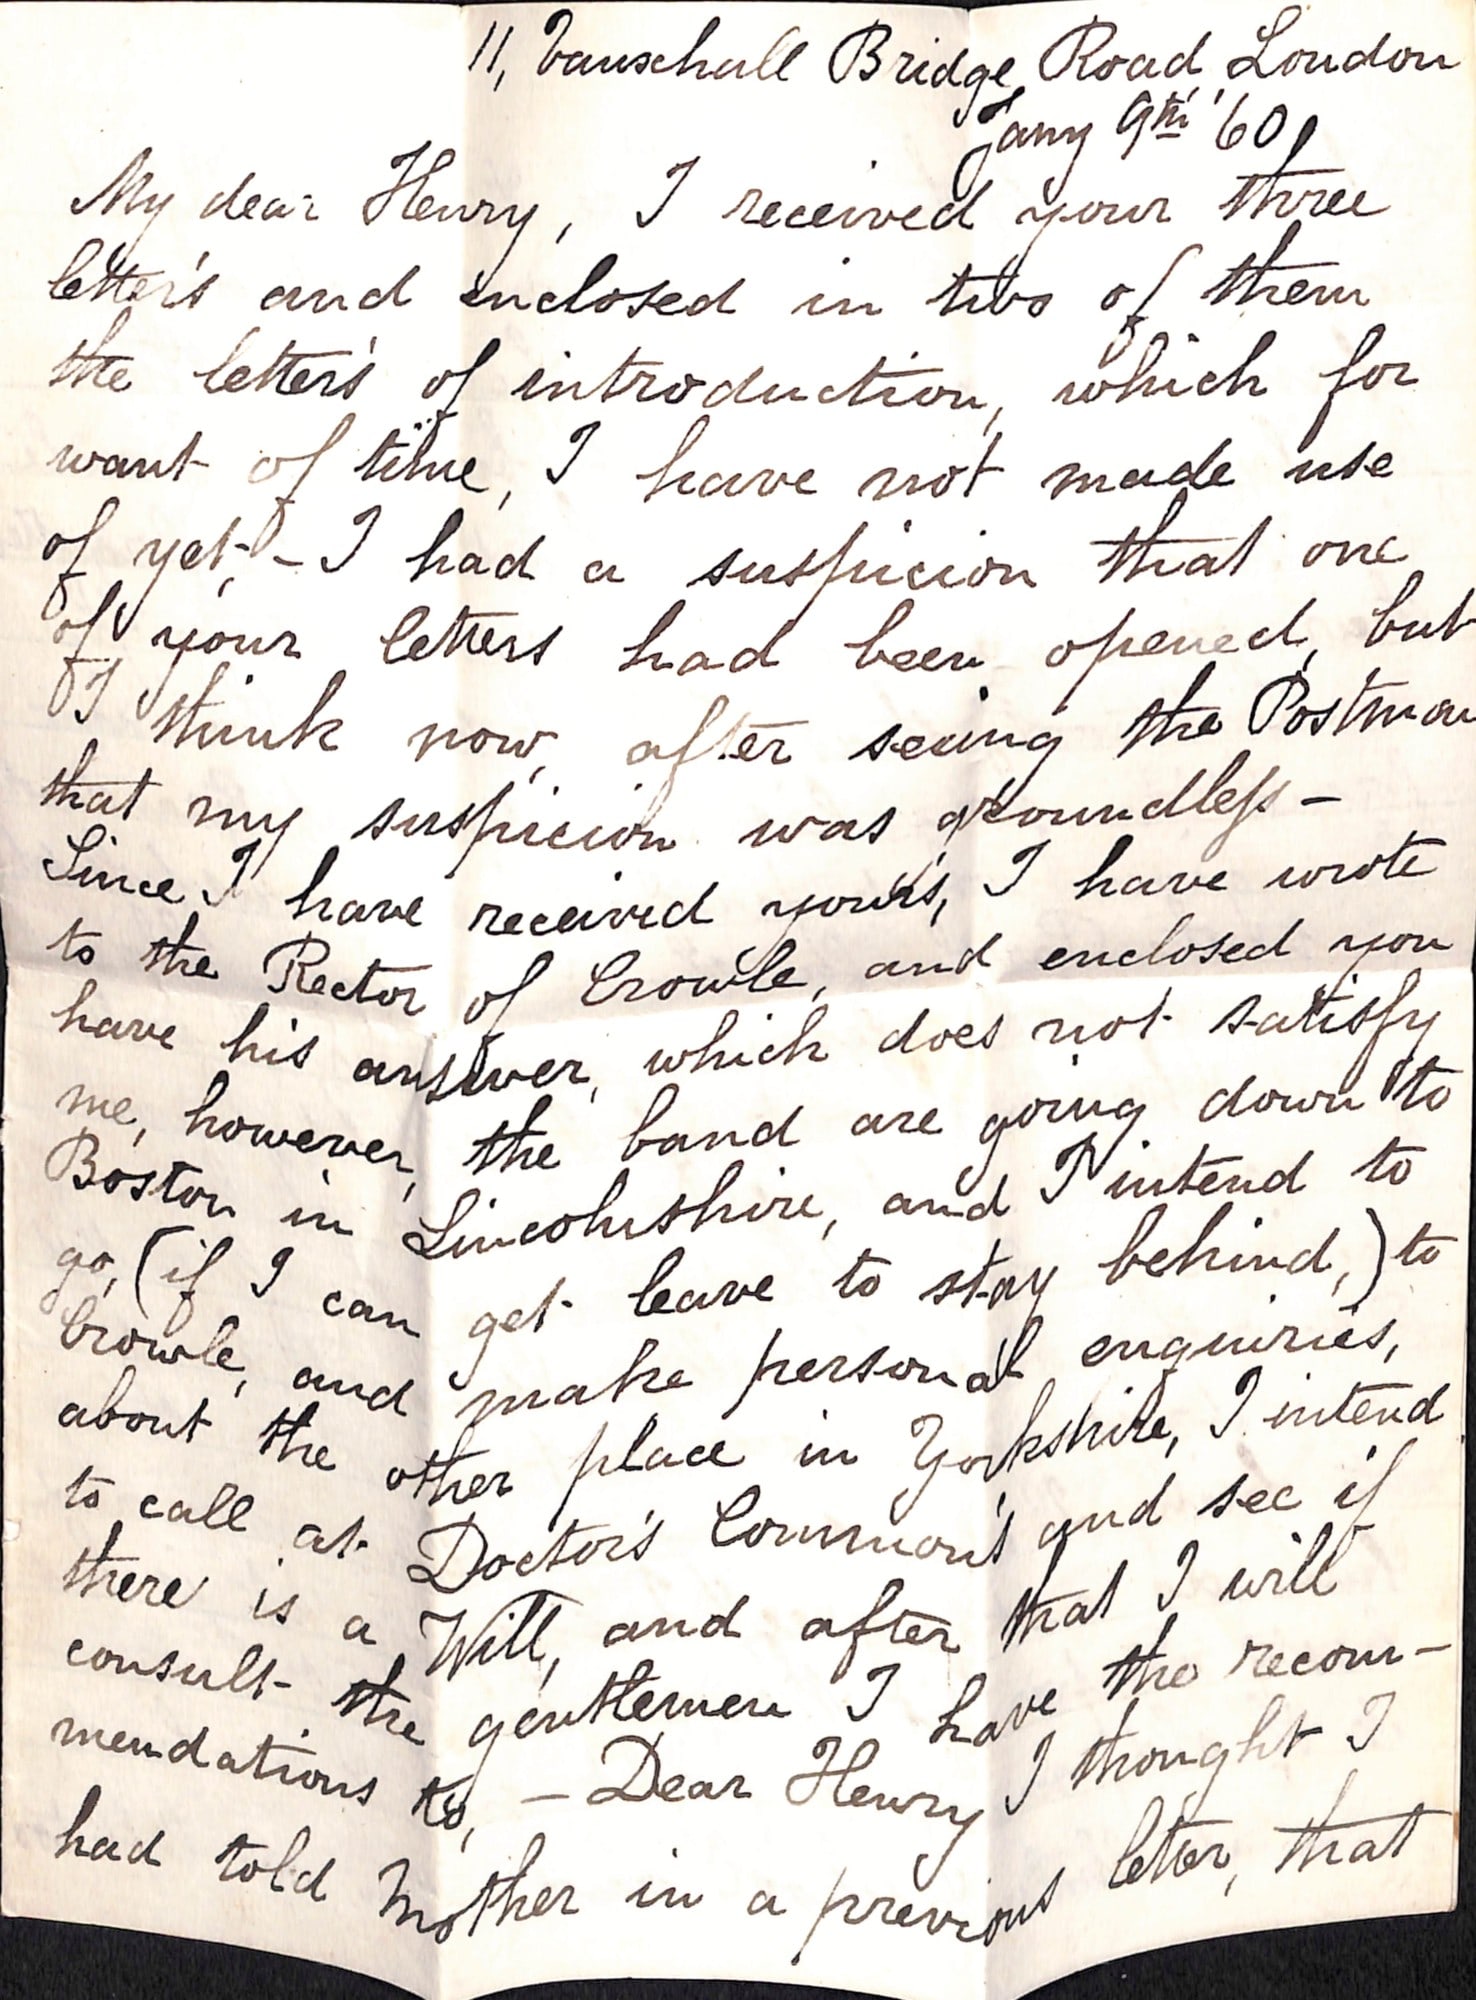 11, Vauxhall Bridge Road, London
Jany 9th '60,
My dear Henry, I received your three
letter's and enclosed in two of them
the letter's of introduction, which for
want of time, I have not made use
of yet, - I had a suspicion that one
of your letters had been opened, but
I think now, after seeing the Postman
that my suspicion was groundless -
Since I have received your's, I have wrote
to the Rector of Crowle, and enclosed you
have his answer, which does not satisfy
me, however, the band are going down to
Boston in Lincolnshire, and I intend to
go, (if I can get leave to stay behind,) to
Crowle, and make personal enquiries,
about the other place in Yorkshire, I intend
to call at Doctor's Common's and see if
there is a Will, and after that I will
consult the gentlemen I have the recom-
mendations to, - Dear Henry I thought I
had told Mother in a previous letter, that